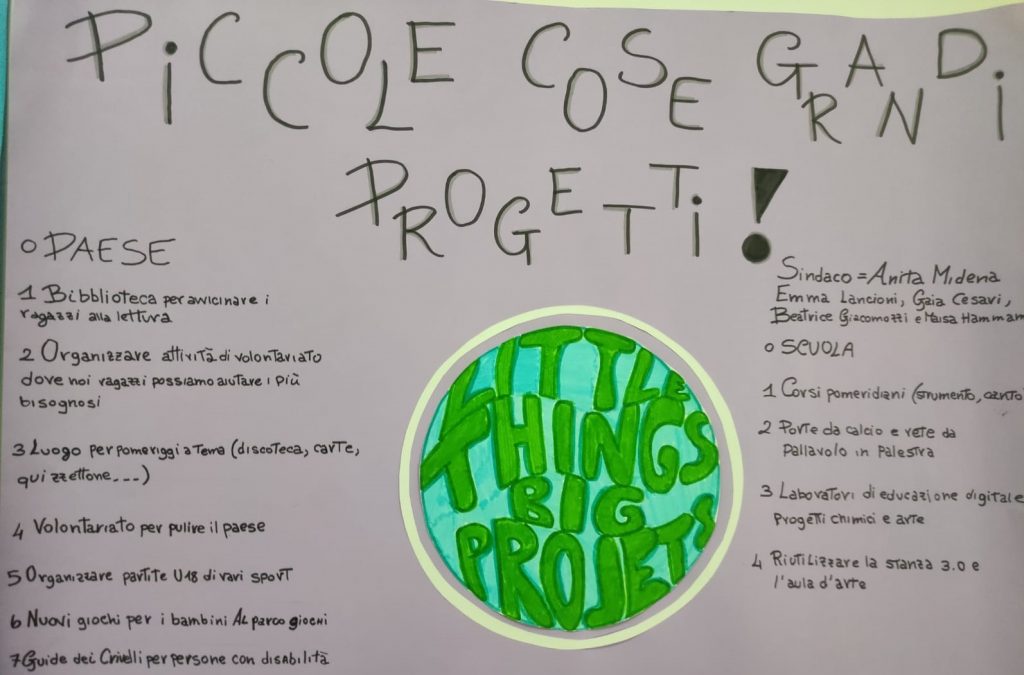 PiCCOLE COSE GRANDi
PROGETTi!
O PAESE
1 Bibblioteca per avvicinare i
ragazzi alla lettura
2 Organizzare attività di volontariato
dove noi ragazzi possiamo aiutare i più
bisognosi
3 Luogo per pomeriggi a tema (discoteca, carte,
quizzettone...)
4 Volontariato per pulire il paese
5 Organizzare partite U18 di vari sport
6 Nuovi giochi per i bambini Al parco giochi
7 Guide dei Crivelli per persone con disabilità
LITTLE
THINGS
BIG
PROJETS
Sindaco = Anita Midena
Emma Lancioni, Gaia Cesari,
Beatrice Giacomozzi e Maisa Hammam
O SCUOLA
1 Corsi pomeridiani (strumento, canto
2 Porte da calcio e rete da
pallavolo in palestra
3 Laboratori di educazione digitale
progetti chimici e arte
4 Riutilizzare la stanza 3.0 e
l'aula d'arte